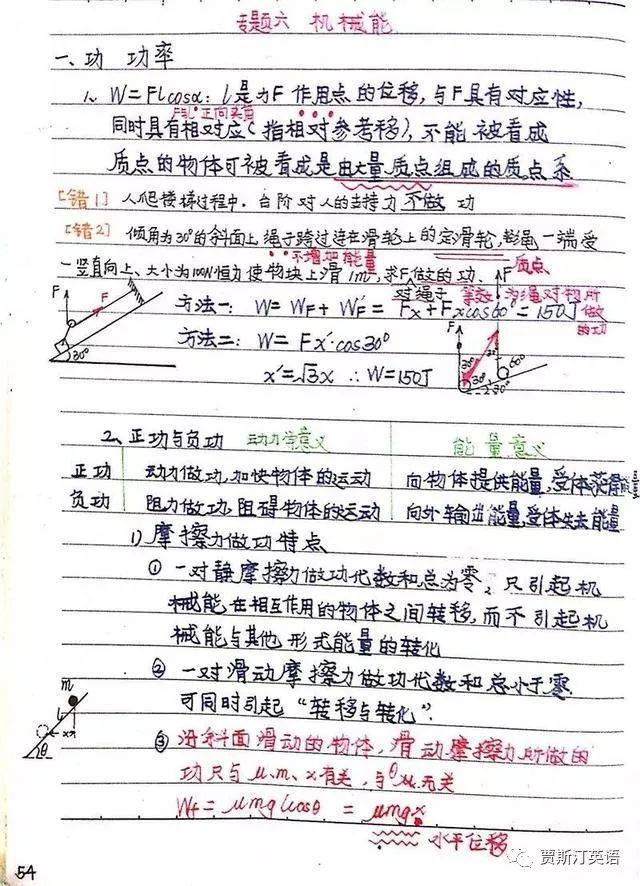 专题六 机械能
一、功 功率
1、W=Flcosα: l是力F作用点的位移,与F具有对应性,
F与l正向夹角
同时具有相对应(指相对参考移),不能被看成
质点的物体可被看成是由大量质点组成的质点系
[错1] 人爬楼梯过程中,台阶对人的支持力不做功
不增加能量
[错2] 倾角为30°的斜面上,绳子跨过连在滑轮上的定滑轮,绳一端受
质点
一竖直向上、大小为100N恒力使物块上滑1m,求F做的功.
对绳子 等效:为绳对物所做的功
方法一: W=WF+WF'=Fx+Fxcos60°=150J
方法二: W=Fx'·cos30°
x'=√3x ∴W=150J
F
F
30°
F
F
30°
2、正功与负功 动力学意义 能量意义
正功 动力做功,加快物体的运动 向物体提供能量,受体获得能量
负功 阻力做功,阻碍物体的运动 向外输出能量,受体失去能量
1) 摩擦力做功特点
① 一对静摩擦力做功代数和总为零,只引起机
械能在相互作用的物体之间转移,而不引起机
械能与其他形式能量的转化
② 一对滑动摩擦力做功代数和总小于零
可同时引起“转移与转化”.
m
l
x
θ
③ 沿斜面滑动的物体,滑动摩擦力所做的
功只与μ、m、x有关,与θ无关
Wf=μmglcosθ=μmgx
水平位移
54
贾斯汀英语